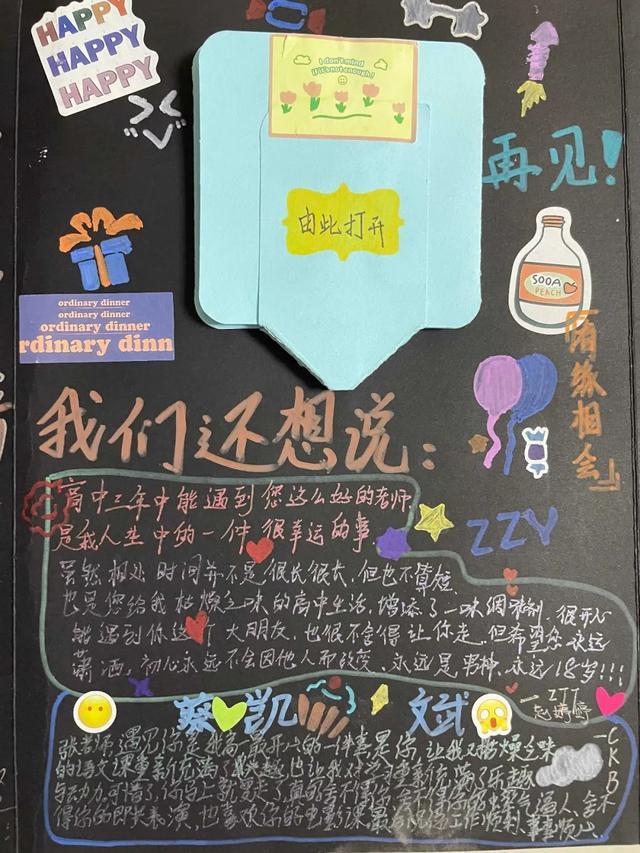 HAPPY
HAPPY
HAPPY
I don't mind
if it's not enough!
再见!
由此打开
SODA
PEACH
ordinary dinner
ordinary dinner
ordinary dinner
rdinary dinn
『有缘相会』
我们还想说:
高中三年中能遇到您这么好的老师
是我人生中的一件很幸运的事
ZZY
虽然相处时间并不是很长很长,但也不算短
也是您给我枯燥乏味的高中生活,增添了一味调味剂,很开心
能遇到你这个大朋友,也很不舍得让你走,但希望您永远
潇洒,初心永远不会因他人而改变、永远是男神、永远18岁!!!
蔡 凯 文武
ZTT
张老师,遇见你是我高一最开心的一件事是你,让我又枯燥乏味
的语文课重新充满了兴趣,也让我对学习重新充满了乐趣
与动力,可惜了,你马上就要走了真的舍不得你
得你的即兴表演,也喜欢你的电影课最后祝你工作顺利,事事顺心
CKB